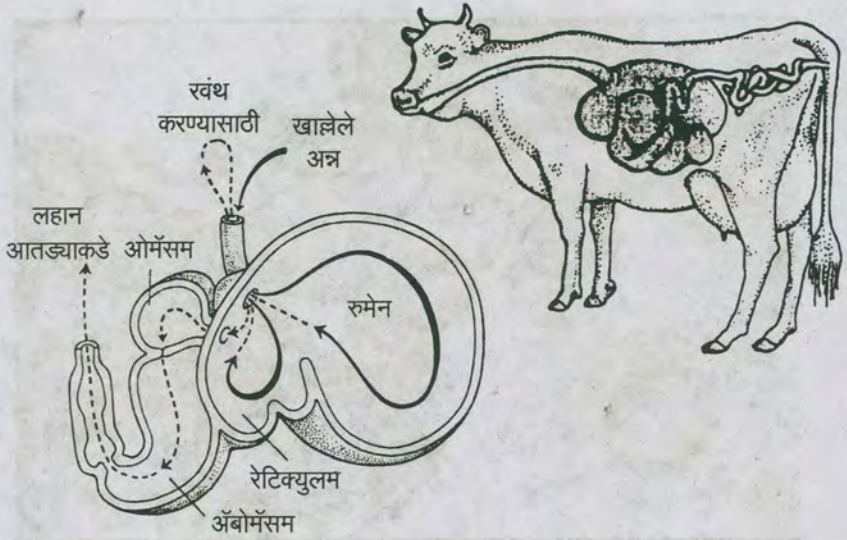 रवंथ
करण्यासाठी
खाल्लेले
अन्न
लहान
आतड्याकडे
ओमॅसम
रुमेन
रेटिक्युलम
ॲबोमॅसम